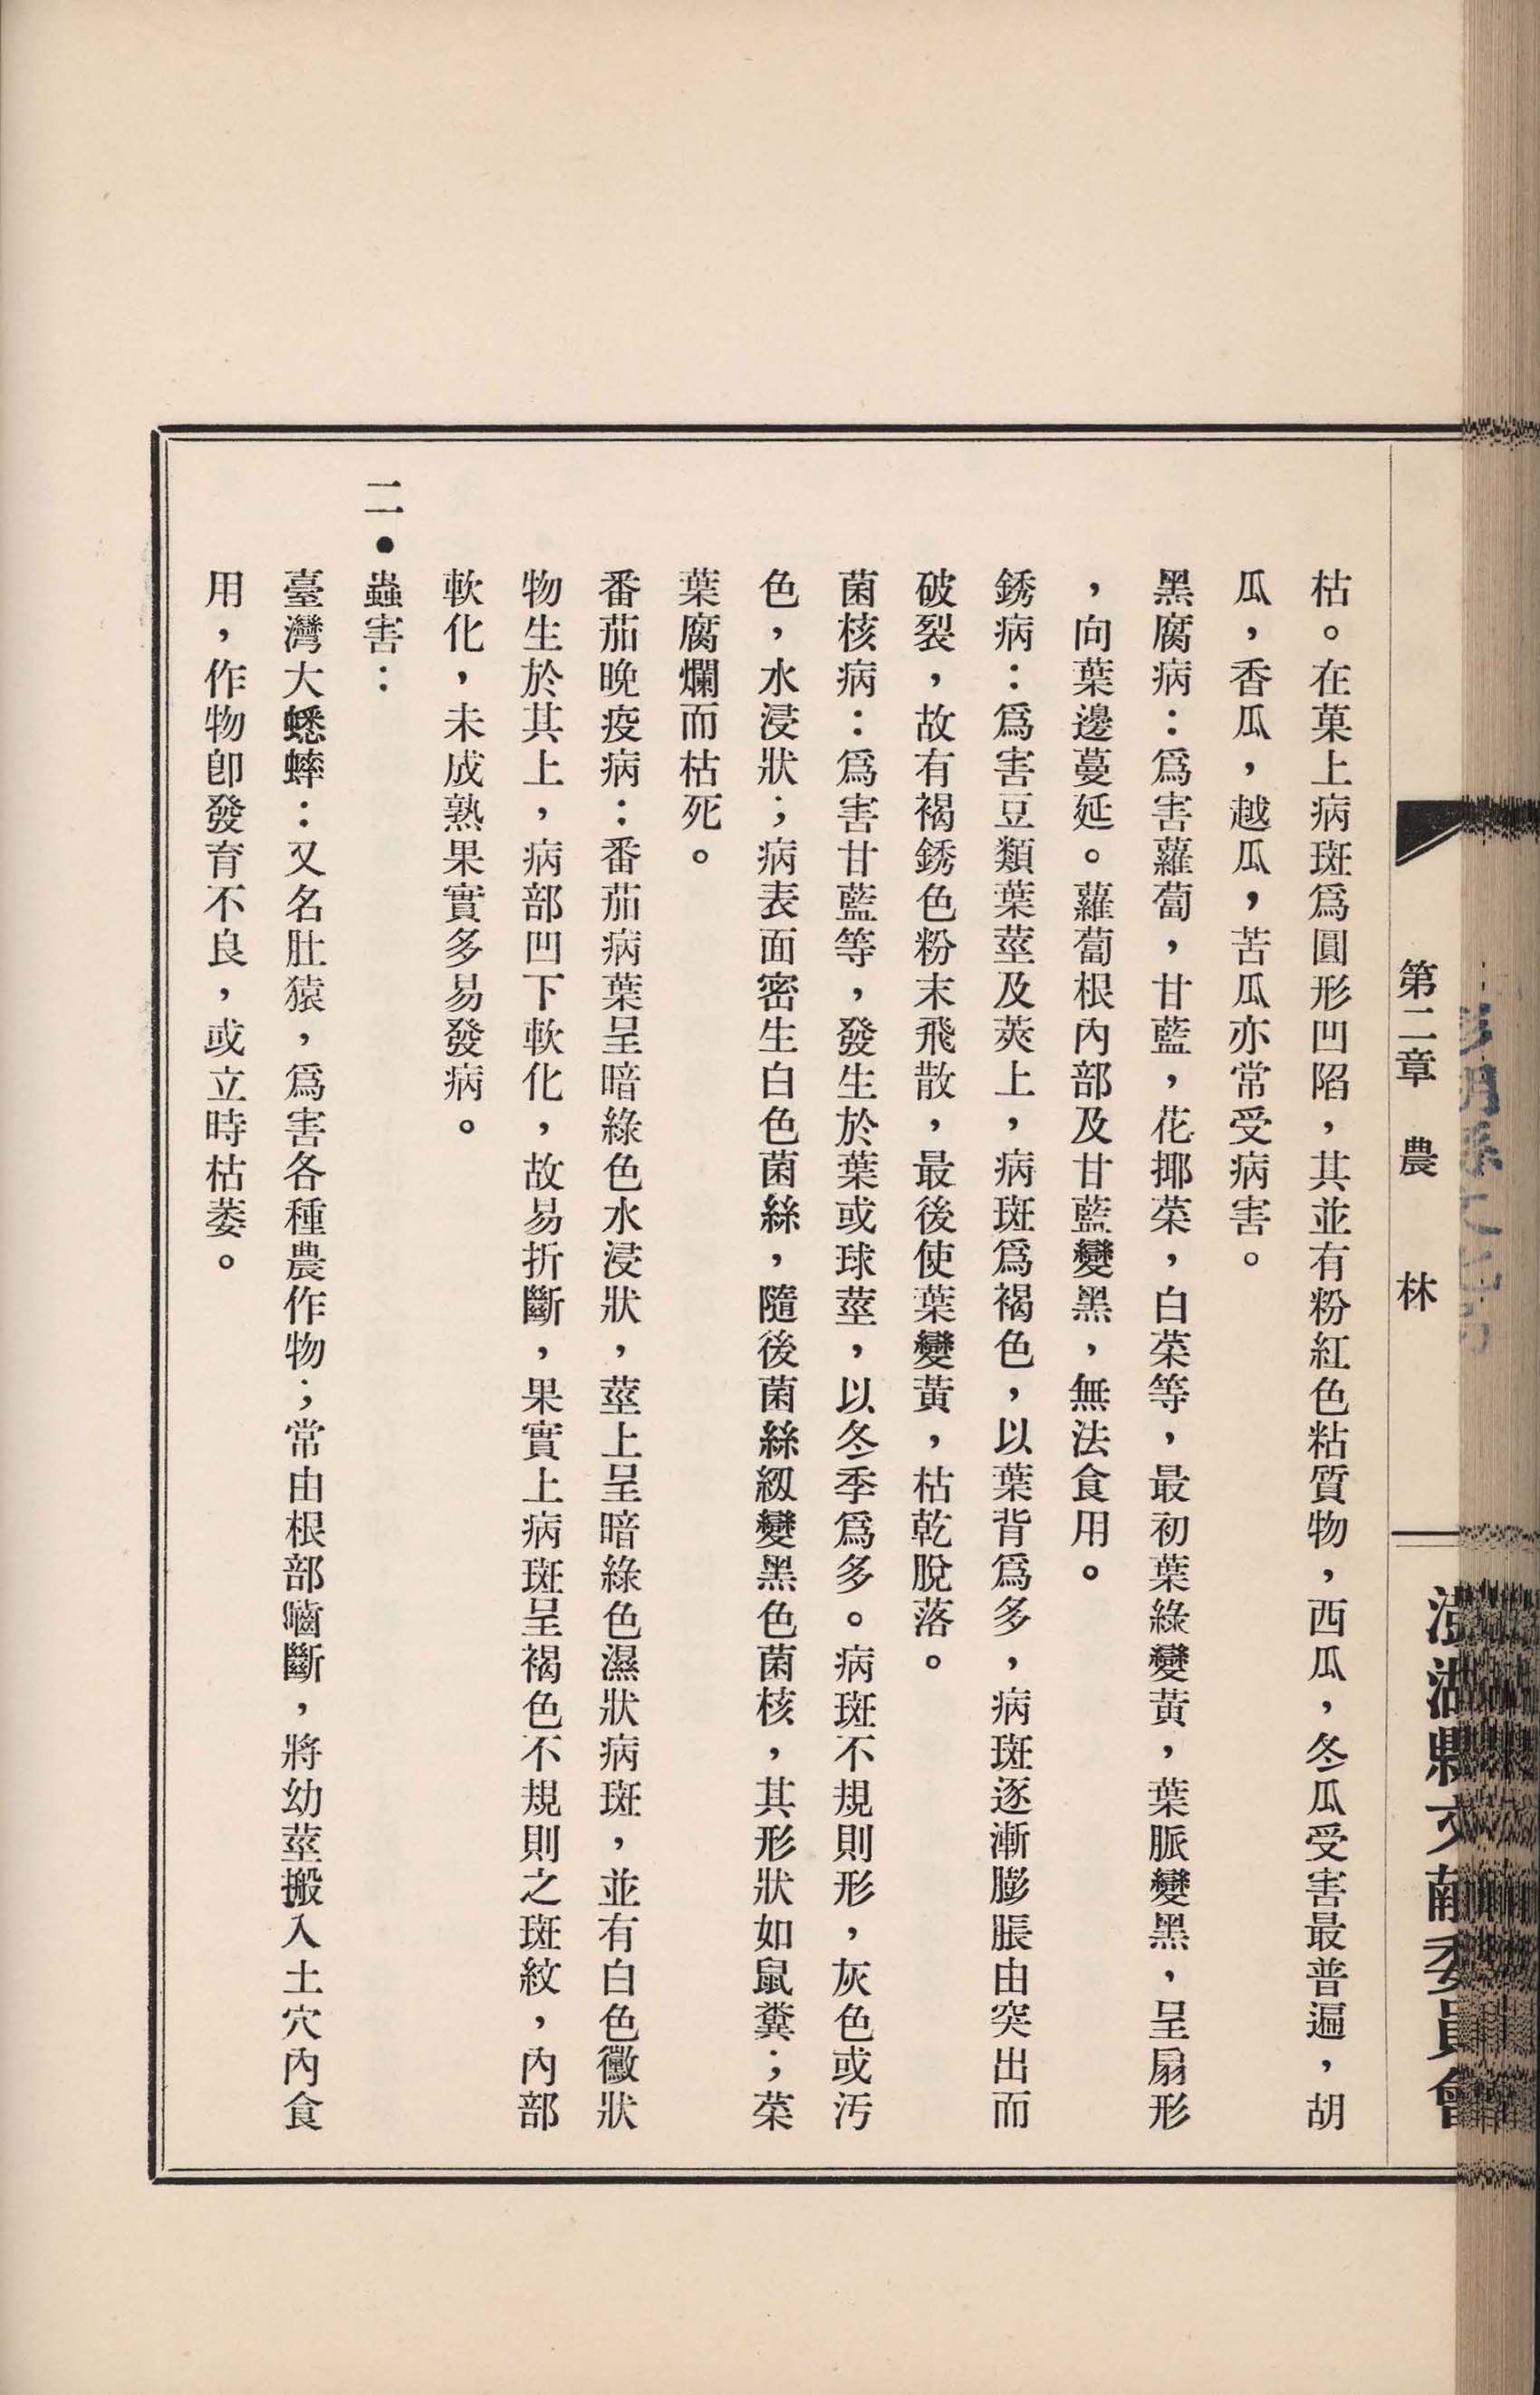 第二章 農 林
澎湖縣文獻委員會
枯。在菓上病斑爲圓形凹陷，其並有粉紅色粘質物，西瓜，冬瓜受害最普遍，胡
瓜，香瓜，越瓜，苦瓜亦常受病害。
黑腐病：爲害蘿蔔，甘藍，花揶菜，白菜等，最初葉綠變黃，葉脈變黑，呈扇形
，向葉邊蔓延。蘿蔔根內部及甘藍變黑，無法食用。
銹病：爲害豆類葉莖及莢上，病斑爲褐色，以葉背爲多，病斑逐漸膨脹由突出而
破裂，故有褐銹色粉末飛散，最後使葉變黃，枯乾脫落。
菌核病：爲害甘藍等，發生於葉或球莖，以冬季爲多。病斑不規則形，灰色或汚
色，水浸狀；病表面密生白色菌絲，隨後菌絲級變黑色菌核，其形狀如鼠糞；菜
葉腐爛而枯死。
番茄晚疫病：番茄病葉呈暗綠色水浸狀，莖上呈暗綠色濕狀病斑，並有白色黴狀
物生於其上，病部凹下軟化，故易折斷，果實上病斑呈褐色不規則之斑紋，內部
軟化，未成熟果實多易發病。
二．蟲害：
臺灣大蟋蟀：又名肚猿，爲害各種農作物；常由根部嚙斷，將幼莖搬入土穴內食
用，作物卽發育不良，或立時枯萎。